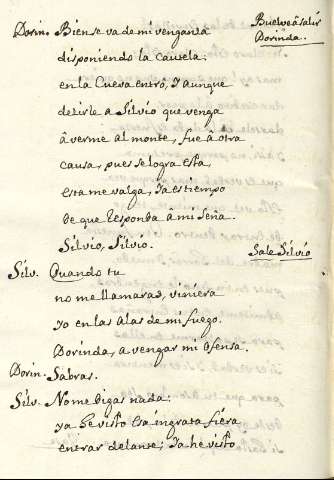 Dorin. Bien se va de mi venganza
Buelve à salir
Dorinda.
disponiendo la cautela:
en la Cueva entrò, Ya aunque
decirle a Silvio que venga
à verme al monte, fue à otra
causa, pues se logra esta,
esta me valga, Ya es tiempo
de que responda à mi seña.
Silvio, Silvio.
Sale Silvio
Silv. Quando tu
no me llamaras, viniera
yo en las alas de mi fuego.
Dorinda, a vengar mi ofensa.
Dorin. Sabras.
Silv. No me digas nada:
ya he visto esa ingrata fiera
entrar delante; Ya he visto